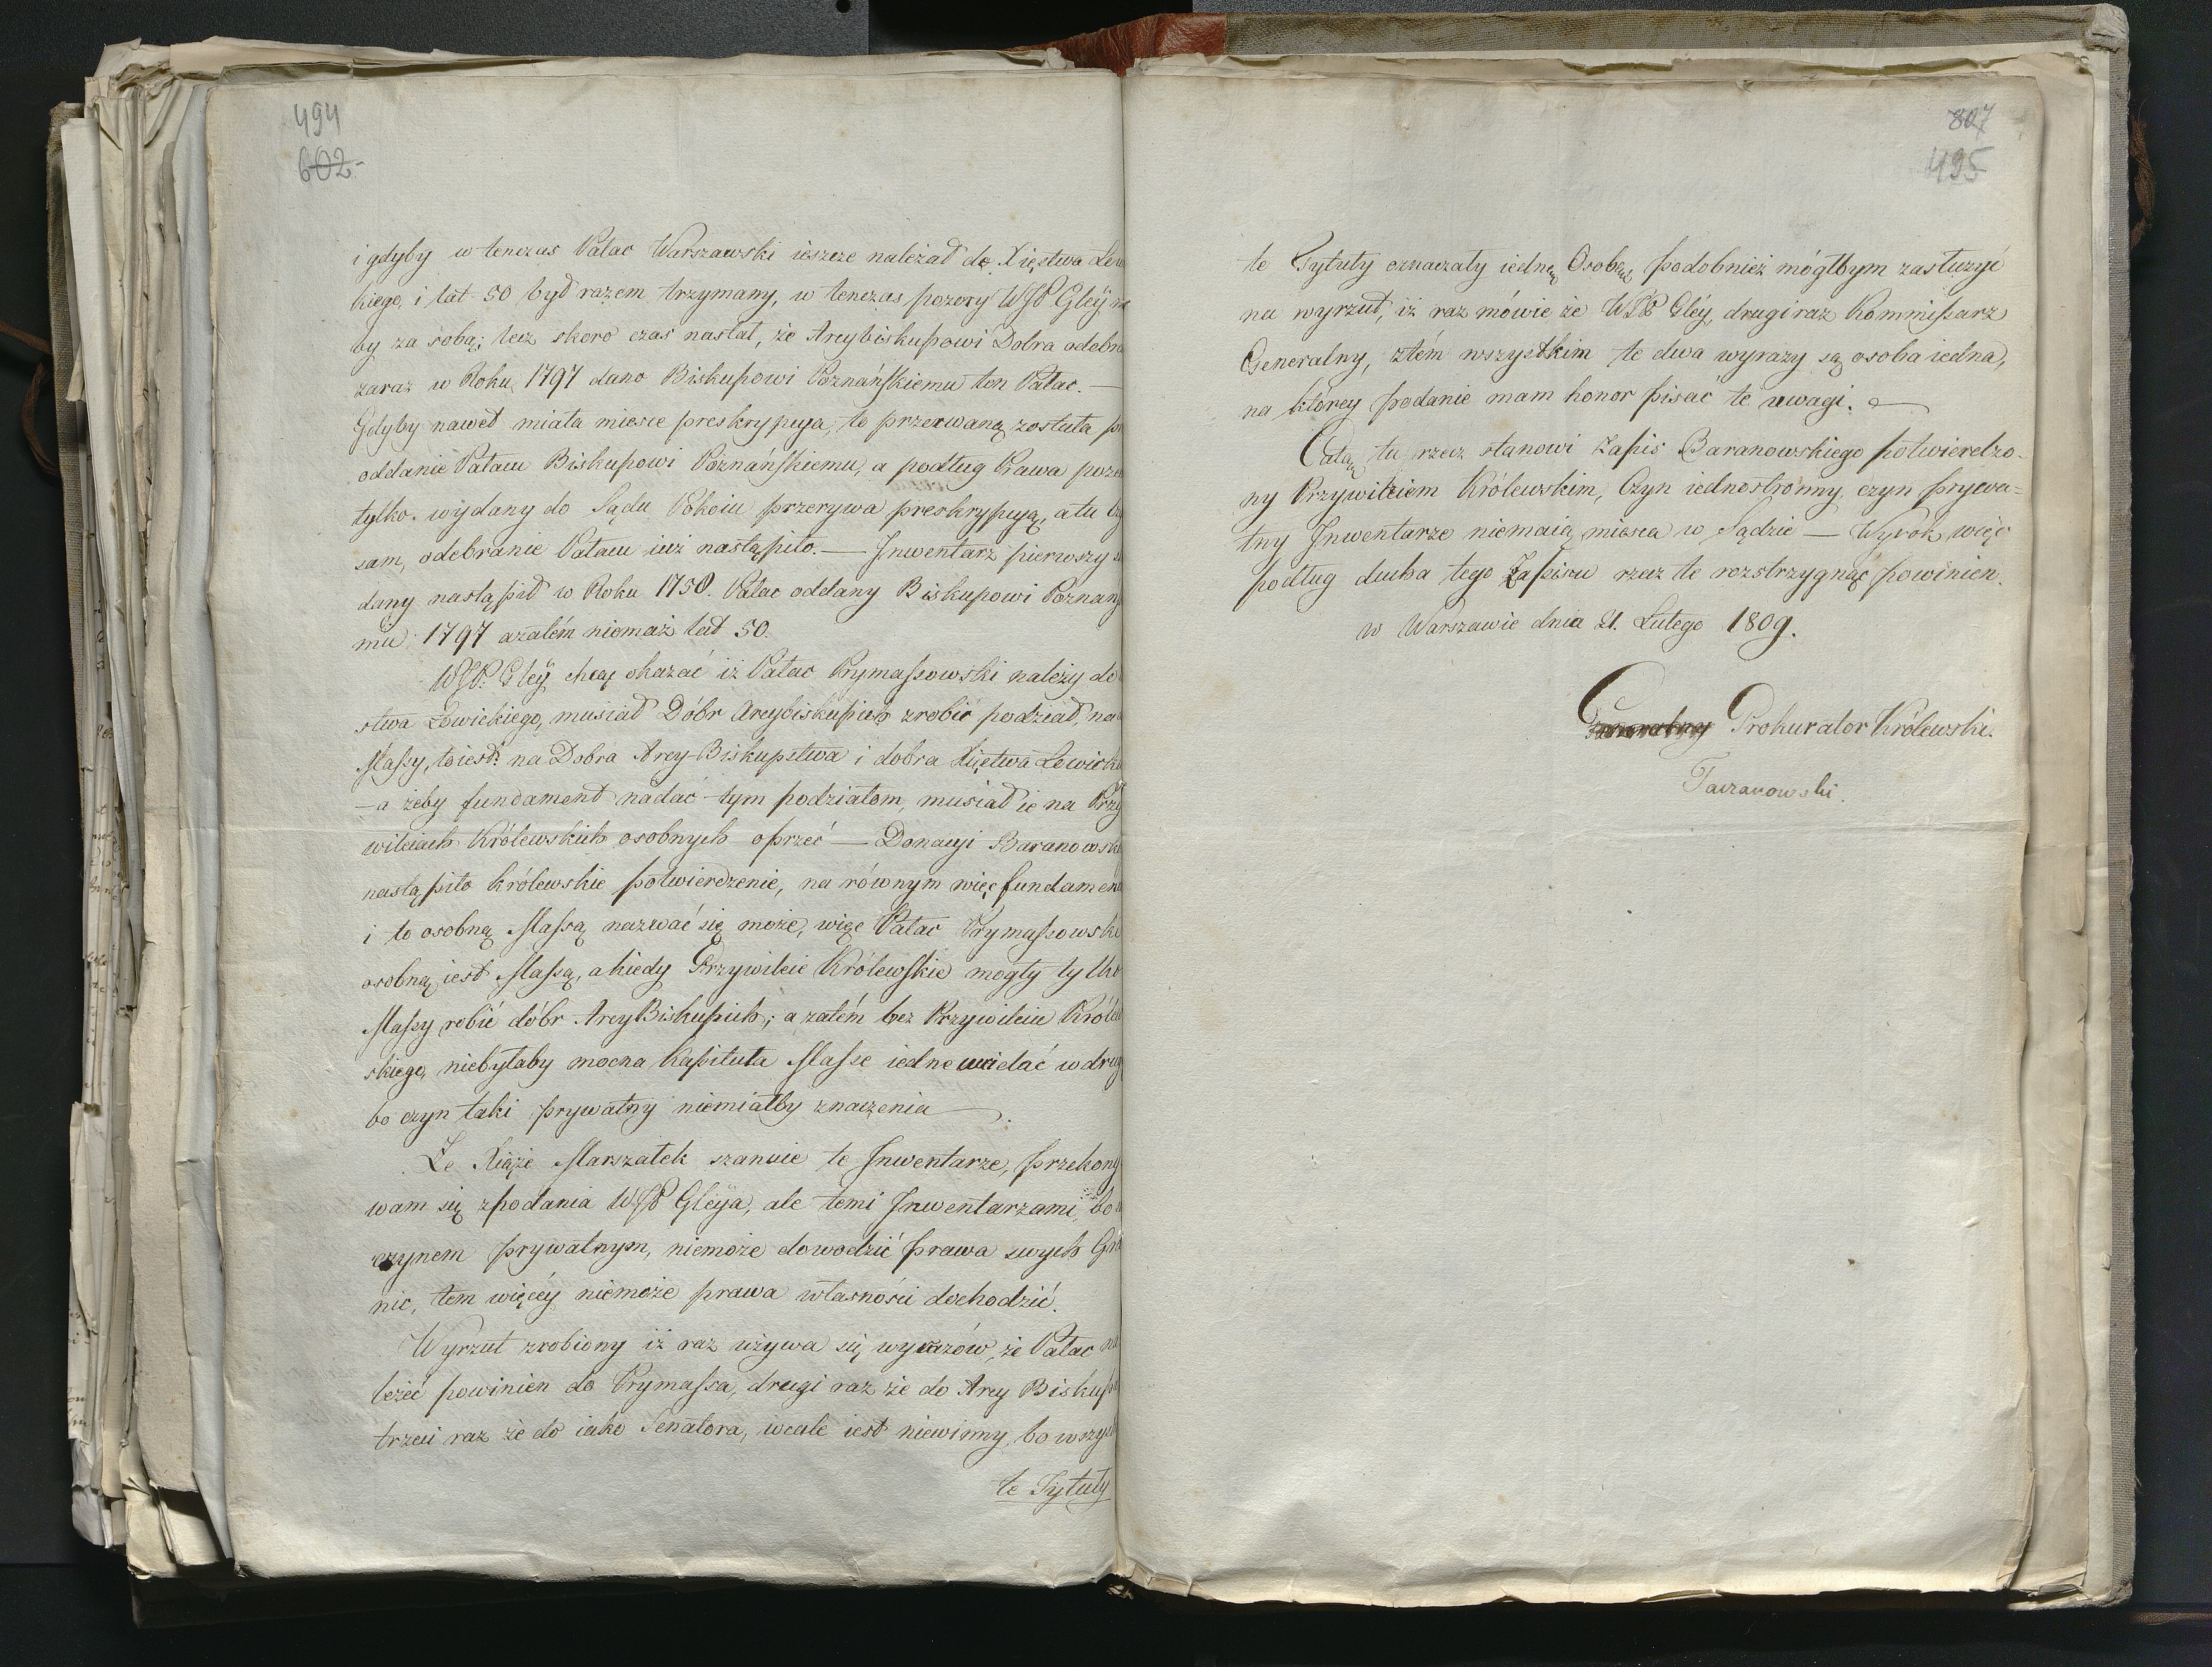 494
602.
i gdyby w tenczas Pałac Warszawski ieszcze należał do Xięstwa Łow
kiego, i lat 50 był razem trzymany, w tenczas pozory WJP Gley m
by za sobą; lecz skoro czas nastał, że Arcybiskupowi Dobra odebra
zaraz w Roku 1797 dano Biskupowi Poznańskiemu ten Pałac. —
Gdyby nawet miała mieysce preskrypcya, to przerwaną została p
oddanie Pałacu Biskupowi Poznańskiemu, a podług Prawa poze
tylko wydany do Sądu Pokoiu przerywa preskrypcyą, a tu
sam, odebranie Pałacu iuż nastąpiło. — Inwentarz pierwszy
dany nastąpił w Roku 1750. Pałac oddany Biskupowi Poznańs
mu 1797 azatém niemasz lat 50.
WJP. Gley chcąc okazać iż Pałac Prymassowski należy do
stwa Łowickiego, musiał Dóbr Arcybiskupich zrobić podział, na
Massy, to iest: na Dobra Arcy-Biskupstwa i dobra Xięstwa Łowick
— a żeby fundament nadać tym podziałom, musiał ie na Przy
wileiach Królewskich osobnych oprzeć — Donacyi Baranowsk
nastąpiło królewskie potwierdzenie, na równym więc fundamen
i to osobną Massą nazwać się może, więc Pałac Prymassowski
osobną iest Massą, a kiedy Przywileie Królewskie mogły tylko
Massy robić dóbr ArcyBiskupich; a zatém bez Przywileiu Króle
skiego, niebyłaby mocna Kapituła Masse iedne wcielać w drug
bo czyn taki prywatny niemiałby znaczenia —.
Że Xiąże Marszałek szanuie te Inwentarze, przekony
wam się z podania WJP Gleya, ale temi Inwentarzami, bo
czynem prywatnym, niemoże dowodzić prawa swych Gra
nic, tem więcéy niemoże prawa własności dochodzić.
Wyrzut zrobiony iż raz używa się wyrazów, że Pałac na
leżeć powinien do Prymassa, drugi raz że do Arcy Biskupa
trzeci raz że do iako Senatora, wcale iest niewinny, bo wszys
te Tytuły
807
495
te Tytuły oznaczały iednę Osobę, podobnież mógłbym zasłużyć
na wyrzut, iż raz mówie że WJP Gléy, drugi raz Kommissarz
Generalny, z tém wszystkim te dwa wyrazy są osoba iedna,
na któréy podanie mam honor pisać te uwagi. —
Całą tu rzecz stanowi Zapis Baranowskiego potwierdzo-
ny Przywileiem Królewskim, Czyn iednostronny, czyn prywa=
tny Inwentarze niemaią mieysca w Sądzie — Wyrok więc
podług ducha tego Zapisu rzecz te rozstrzygnąć powinien.
w Warszawie dnia 21. Lutego 1809.
Generalny Prokurator Królewski.
Taczanowski.